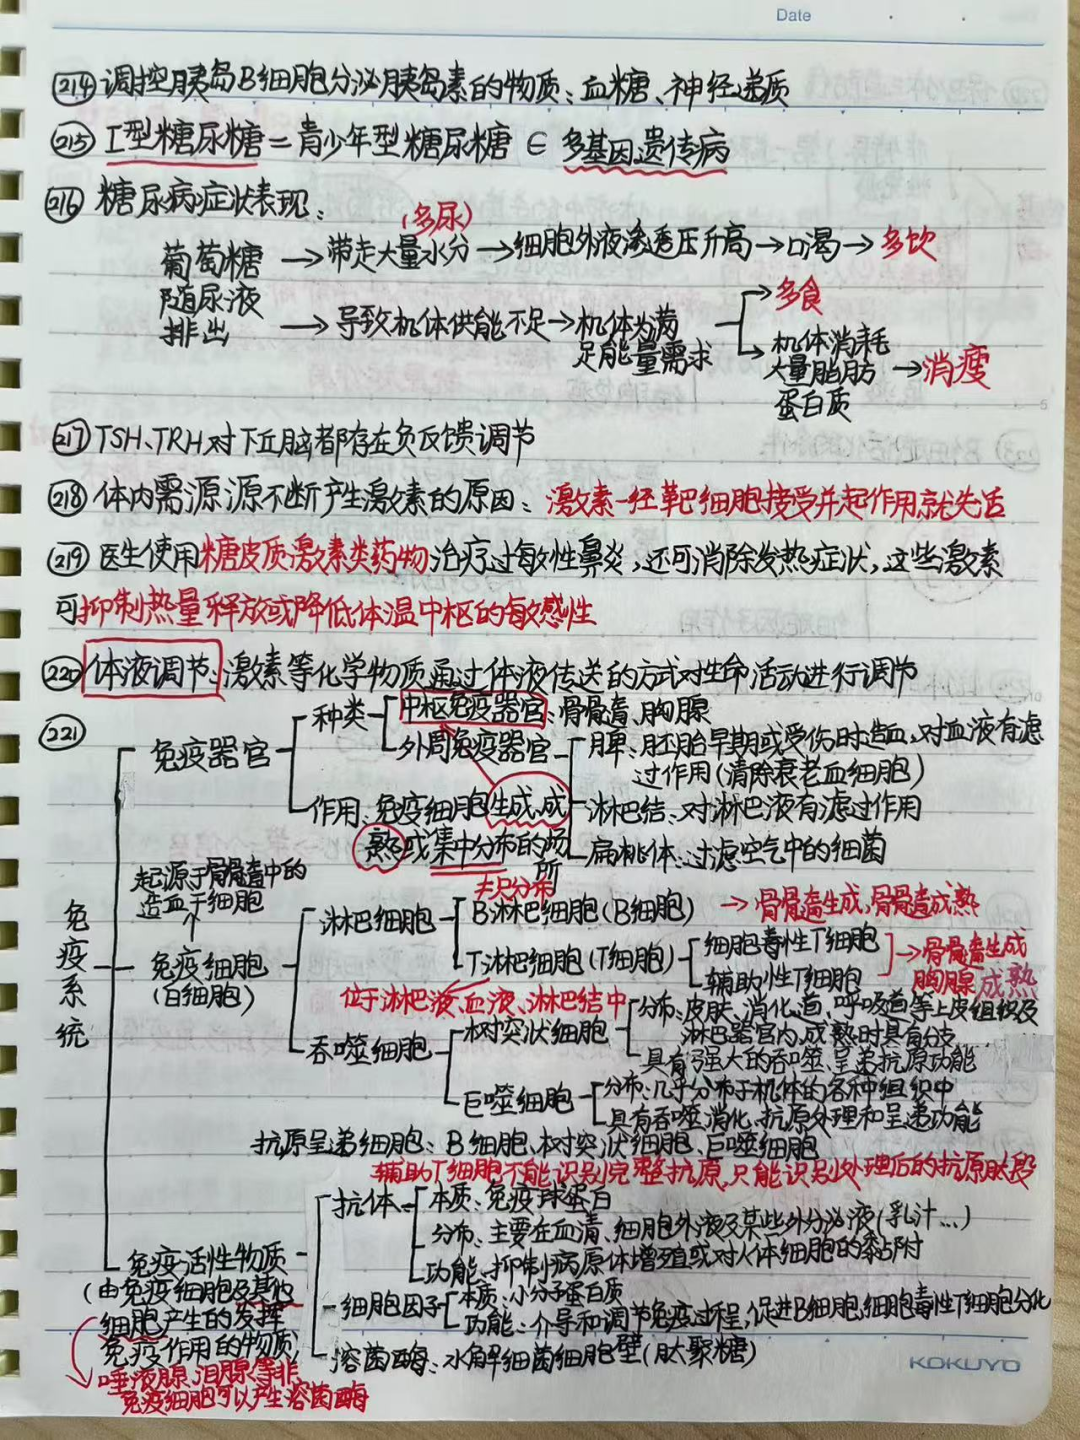 Date
214 调控胰岛B细胞分泌胰岛素的物质：血糖、神经递质
215 I型糖尿糖=青少年型糖尿糖 ∈ 多基因遗传病
216 糖尿病症状表现：
(多尿)
葡萄糖 → 带走大量水分 → 细胞外液渗透压升高 → 口渴 → 多饮
随尿液
排出 → 导致机体供能不足 → 机体为满
足能量需求
→ 多食
→ 机体消耗
大量脂肪 → 消瘦
蛋白质
217 TSH、TRH对下丘脑都存在负反馈调节
218 体内需源源不断产生激素的原因：激素一经靶细胞接受并起作用就失活
219 医生使用糖皮质激素类药物治疗过敏性鼻炎，还可消除发热症状，这些激素
可抑制热量释放或降低体温中枢的敏感性
220 体液调节：激素等化学物质通过体液传送的方式对生命活动进行调节
221
免疫系统
免疫器官
种类
中枢免疫器官：骨骨髓、胸腺
外周免疫器官
脾：胚胎早期或受伤时造血，对血液有滤
过作用(清除衰老血细胞)
淋巴结：对淋巴液有滤过作用
扁桃体：过滤空气中的细菌
作用：免疫细胞生成、成
熟或集中分布的场
所
≠只分布
起源于骨骨髓中的
造血干细胞
免疫细胞
(白细胞)
淋巴细胞
B淋巴细胞(B细胞) → 骨骨髓生成，骨骨髓成熟
T淋巴细胞(T细胞)
细胞毒性T细胞
辅助性T细胞
→ 骨骨髓生成
胸腺成熟
位于淋巴液、血液、淋巴结中
吞噬细胞
树突状细胞
分布：皮肤、消化道、呼吸道等上皮组织及
淋巴器官内，成熟时具有分支
具有强大的吞噬、呈递抗原功能
巨噬细胞
分布：几乎分布于机体的各种组织中
具有吞噬消化、抗原处理和呈递功能
抗原呈递细胞：B细胞、树突状细胞、巨噬细胞
辅助T细胞不能识别完整抗原，只能识别处理后的抗原肽段
免疫活性物质
(由免疫细胞及其他
细胞产生的发挥
免疫作用的物质)
唾液腺、泪腺等非
免疫细胞可以产生溶菌酶
抗体
本质：免疫球蛋白
分布：主要在血清、细胞外液及某些外分泌液(乳汁…)
功能：抑制病原体增殖或对人体细胞的黏附
细胞因子
本质：小分子蛋白质
功能：介导和调节免疫过程，促进B细胞，细胞毒性T细胞分化
溶菌酶：水解细菌细胞壁(肽聚糖)
KOKUYO